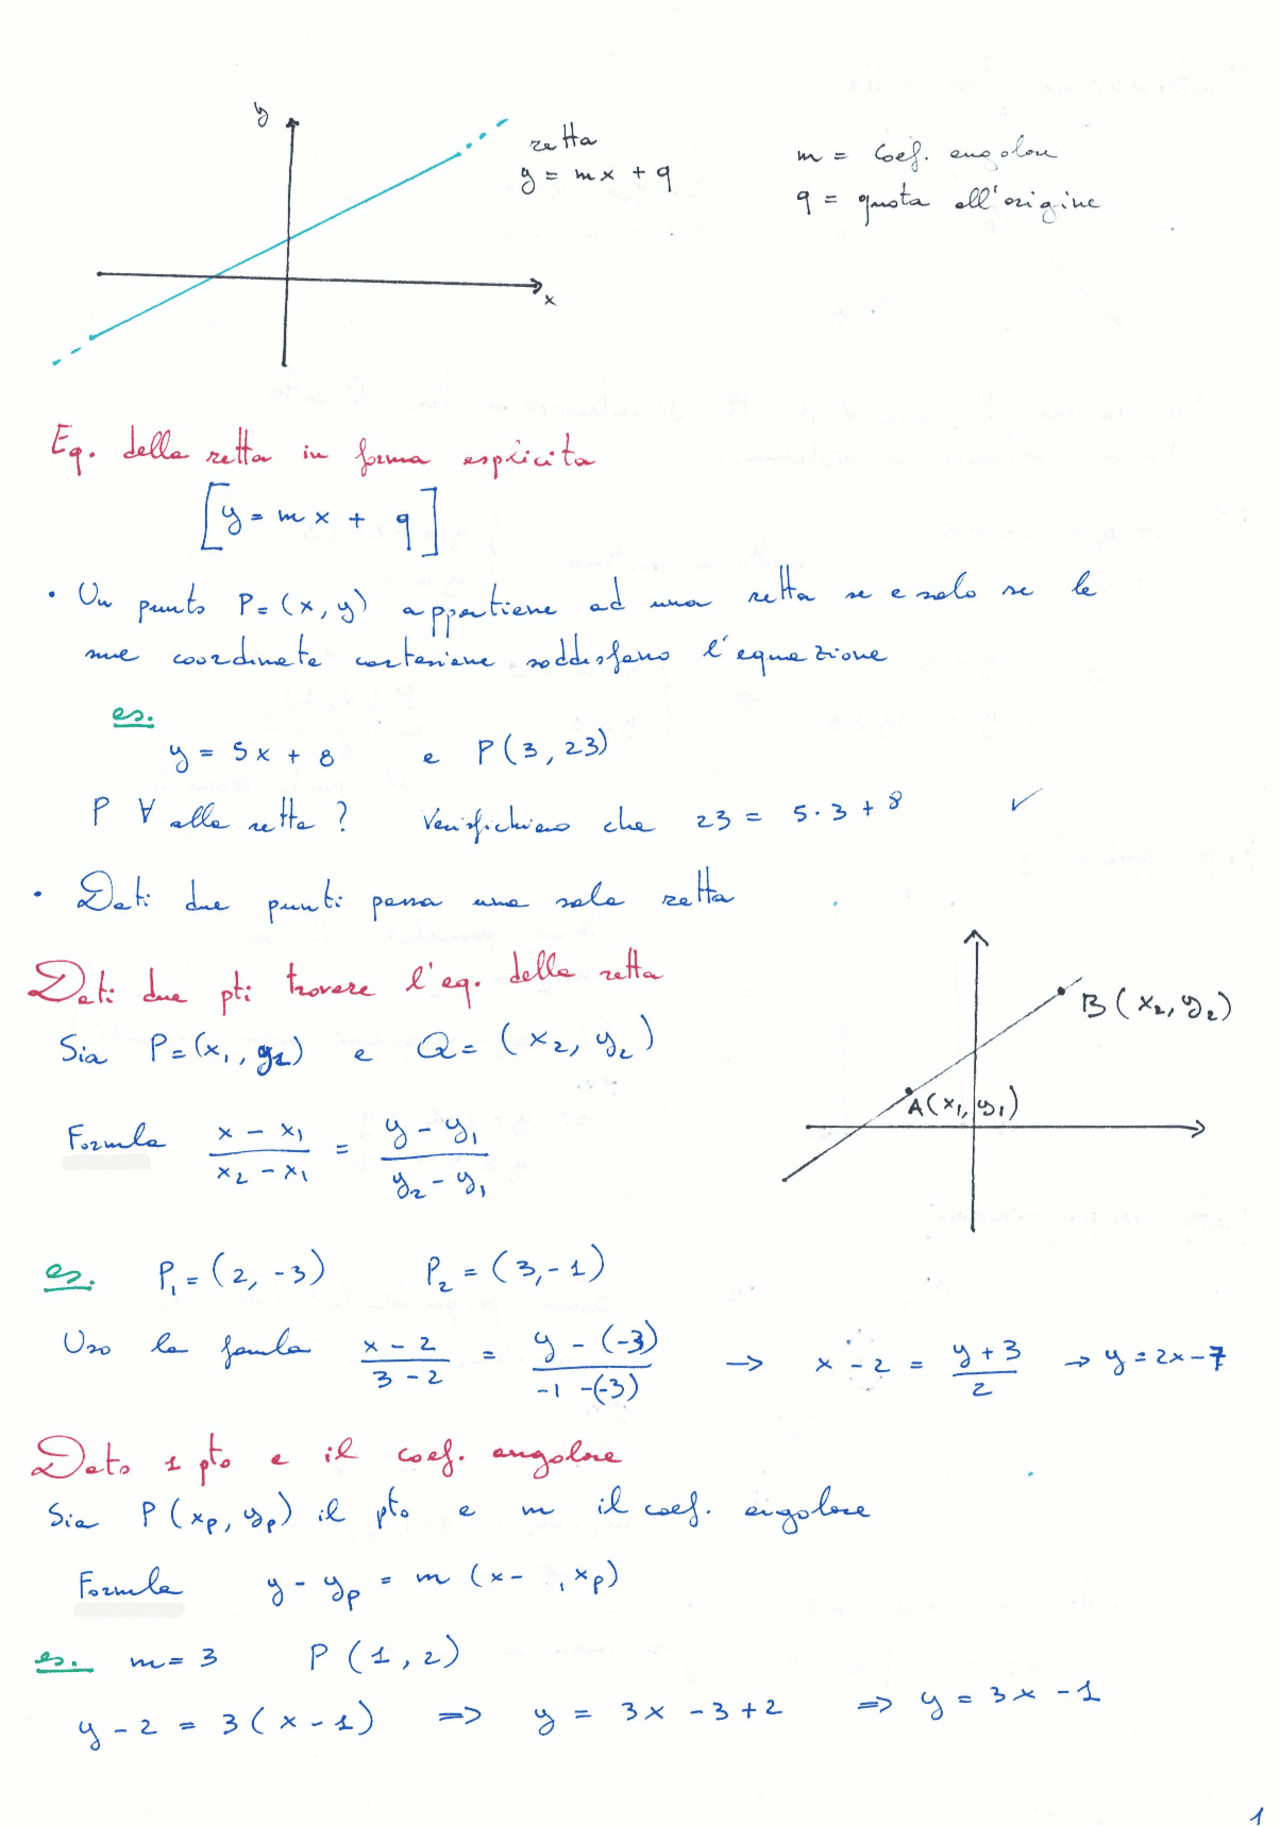 y
retta
y = mx + q
x
m = coef. angolare
q = quota all'origine
Eq. della retta in forma esplicita
[y = mx + q]
• Un punto P=(x, y) appartiene ad una retta se e solo se le
sue coordinate cartesiane soddisfano l'equazione
es.
y = 5x + 8 e P(3, 23)
P ∀ alla retta? Verifichiamo che 23 = 5·3 + 8 ✓
• Dati due punti passa una sola retta
Dati due pti trovare l'eq. della retta
Sia P=(x₁, y₁) e Q=(x₂, y₂)
B(x₂, y₂)
A(x₁, y₁)
Formula (x - x₁)/(x₂ - x₁) = (y - y₁)/(y₂ - y₁)
es. P₁=(2, -3) P₂=(3, -1)
Uso la formula (x - 2)/(3 - 2) = (y - (-3))/(-1 -(-3)) → x - 2 = (y + 3)/2 → y = 2x - 7
Dato 1 pto e il coef. angolare
Sia P(xₚ, yₚ) il pto e m il coef. angolare
Formula y - yₚ = m (x - xₚ)
es. m = 3 P(1, 2)
y - 2 = 3(x - 1) ⇒ y = 3x - 3 + 2 ⇒ y = 3x - 1
1